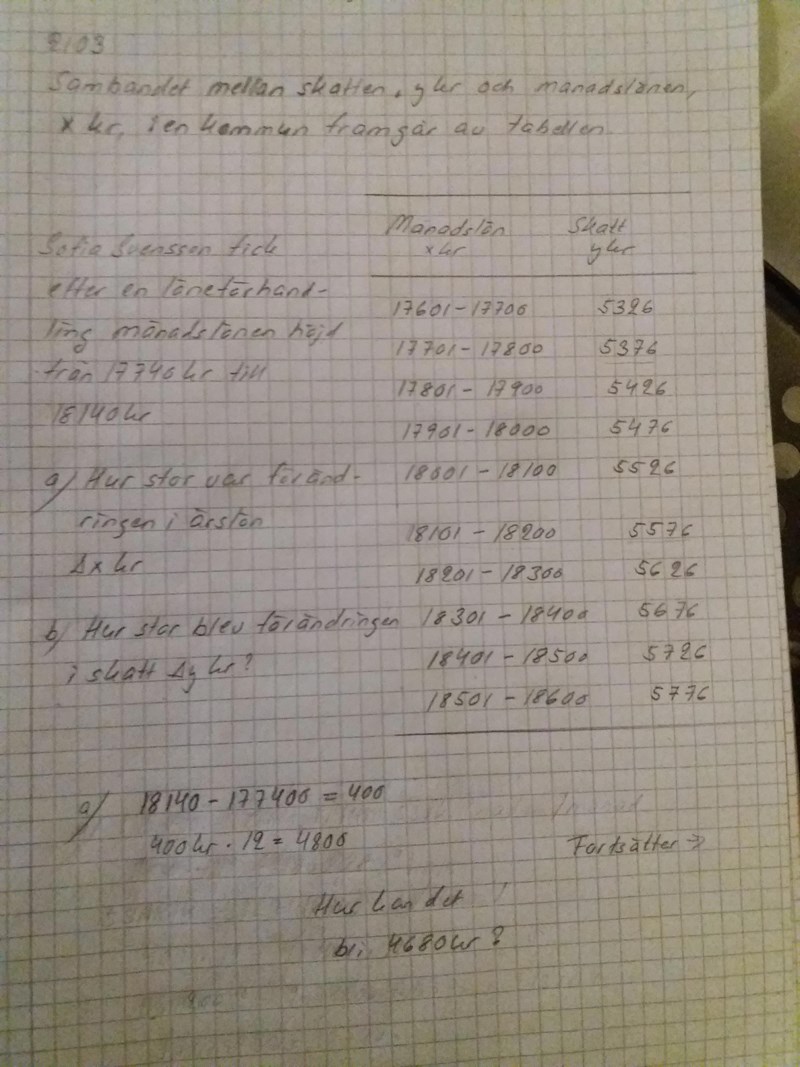 2103
Sambandet mellan skatten, y kr och månadslönen,
x kr, i en kommun framgår av tabellen.
Sofia Svensson fick
efter en löneförhand-
ling månadslönen höjd
från 17740 kr till
18140 kr
a) Hur stor var föränd-
ringen i årslön
Δx kr
b) Hur stor blev förändringen
i skatt Δy kr?
Månadslön Skatt
x kr y kr
17601-17700 5326
17701-17800 5376
17801-17900 5426
17901-18000 5476
18001-18100 5526
18101-18200 5576
18201-18300 5626
18301-18400 5676
18401-18500 5726
18501-18600 5776
a) 18140-177400 = 400
400kr · 12 = 4800
Fortsätter →
Hur kan det
bli 4680kr?